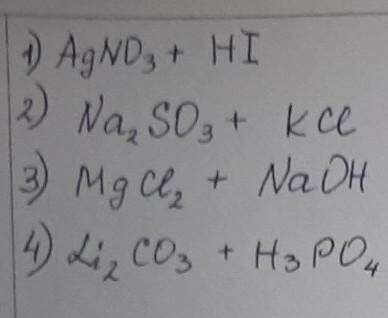 1) AgNO₃ + HI
2) Na₂SO₃ + KCl
3) MgCl₂ + NaOH
4) Li₂CO₃ + H₃PO₄